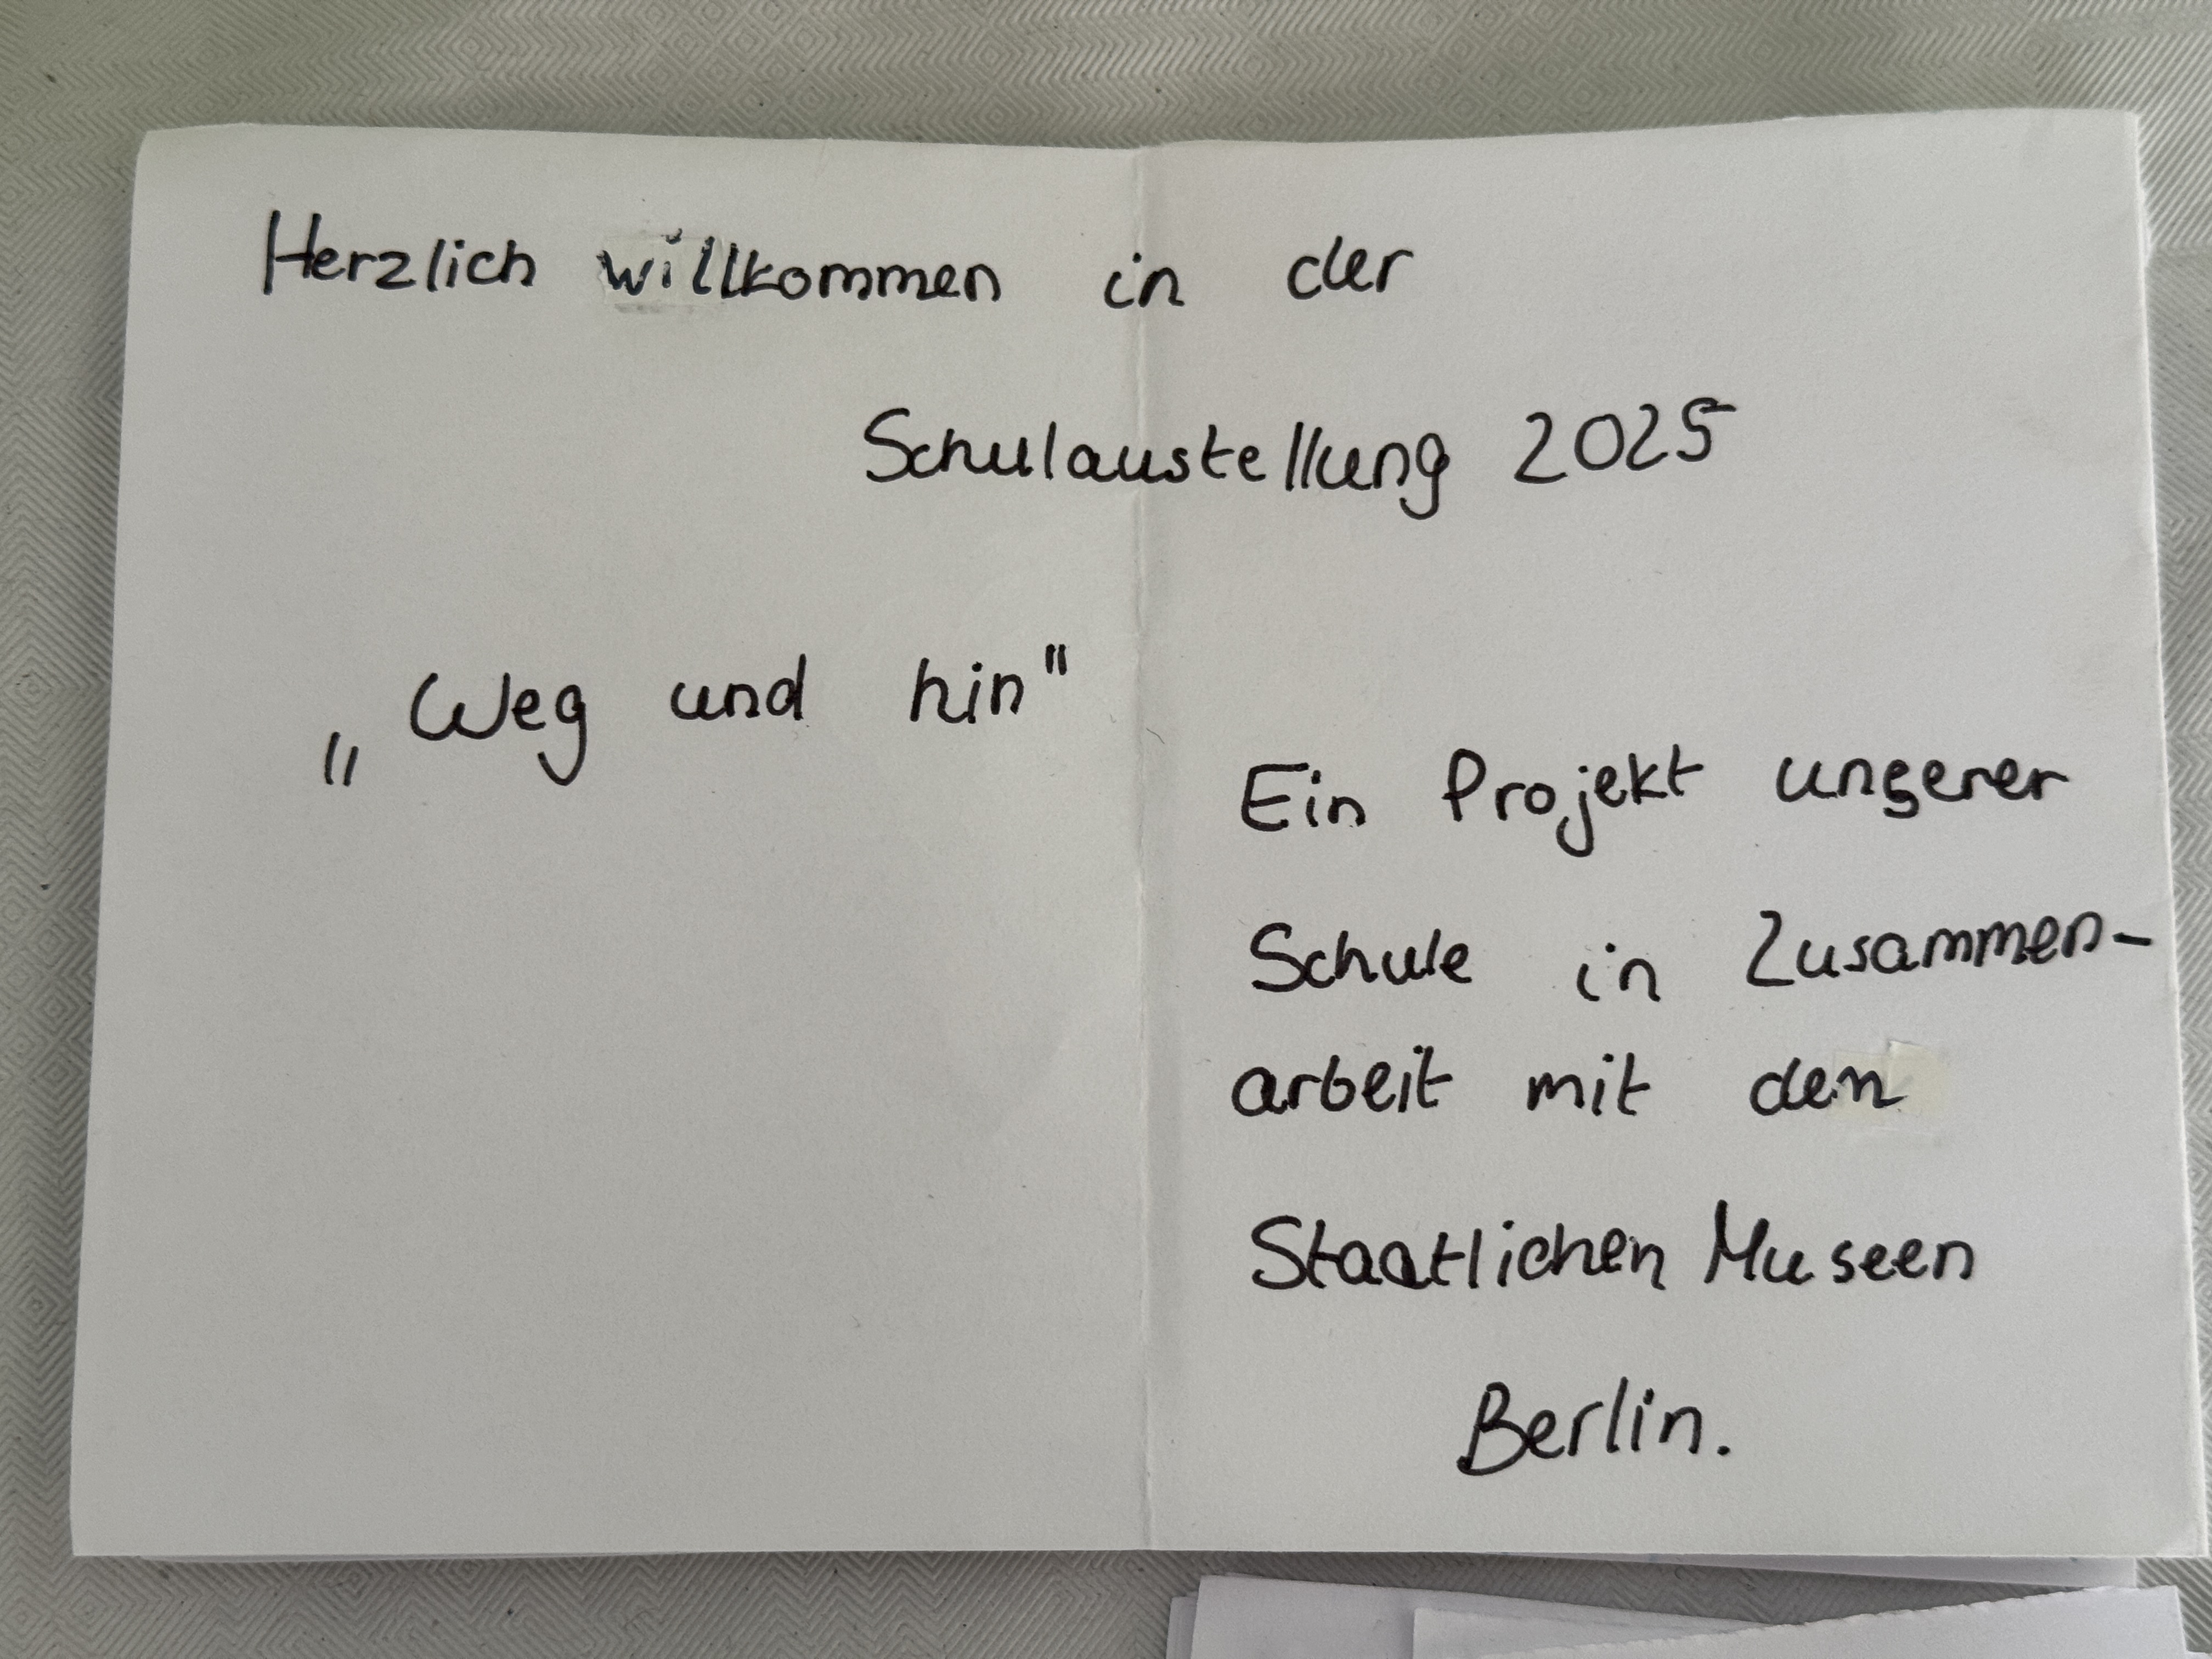 Herzlich willkommen in der
Schulaustellung 2025
„Weg und hin"
Ein Projekt unserer
Schule in Zusammen-
arbeit mit den
Staatlichen Museen
Berlin.